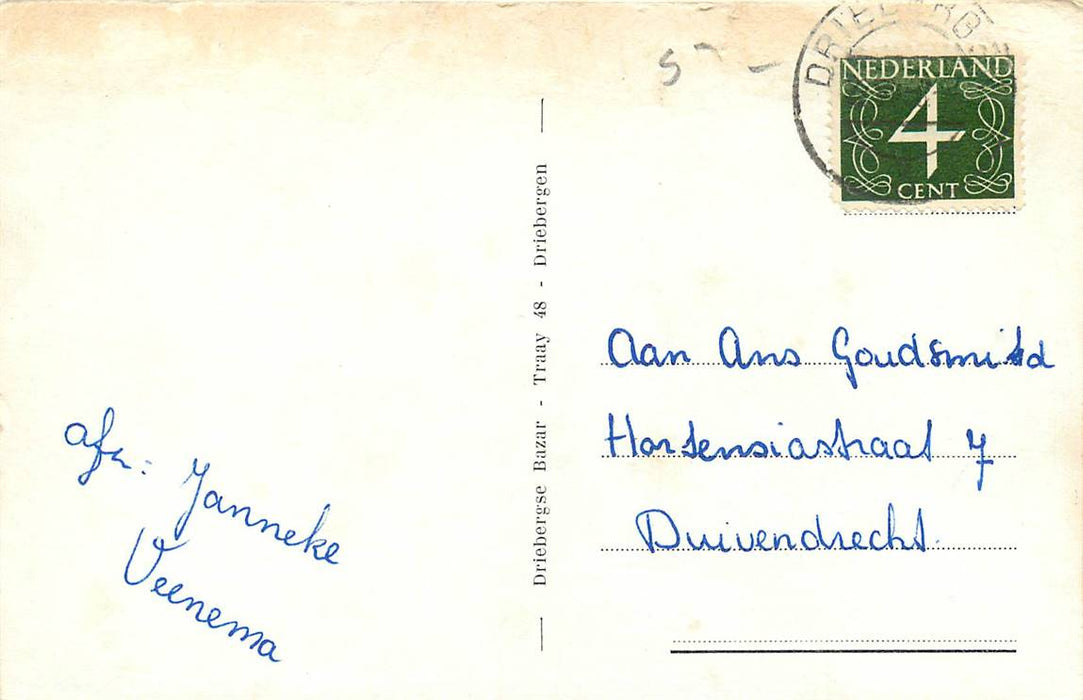 5
NEDERLAND
4
CENT
Driebergse Bazar - Traay 48 - Driebergen
Aan Ans Goudsmitd
Hortensiastraat 7
Duivendrecht.
afz:
Janneke
Veenema